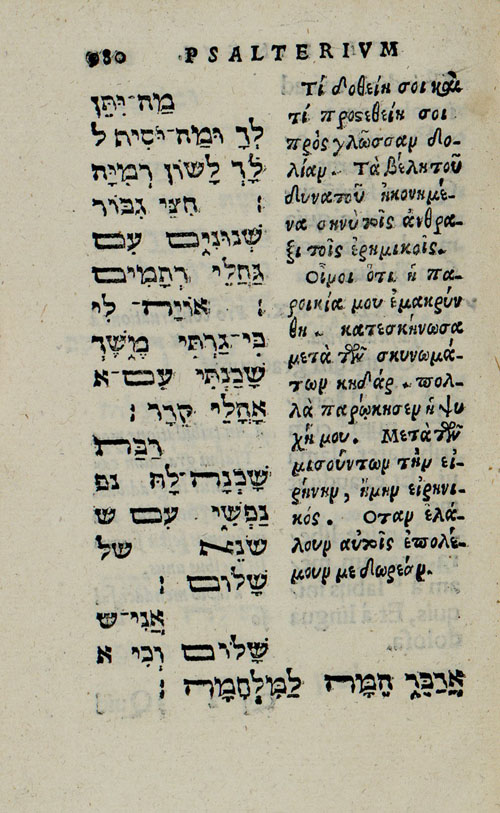 PSALTERIVM
מַה־יִּתֵּן
לְךָ וּמַה־יֹּסִיף ל
לָךְ לָשׁוֹן רְמִיָּה
: חִצֵּי גִבּוֹר
שְׁנוּנִים עִם
גַּחֲלֵי רְתָמִים
: אוֹיָה־לִי
כִּי־גַרְתִּי מֶשֶׁךְ
שָׁכַנְתִּי עִם־א
אָהֳלֵי קֵדָר :
רַבַּת
שָׁכְנָה־לָּהּ נפ
נַפְשִׁי עִם ש
שׂנֵא של
שָׁלוֹם :
אֲנִי־ש
שָׁלוֹם וְכִי א
אֲדַבֵּר הֵמָּה לַמִּלְחָמָה :
Τί δοθείη σοι καὶ
τί προστεθείη σοι
πρὸς γλῶσσαν δο-
λίαν. Τὰ βέλη τοῦ
δυνατοῦ ἠκονημέ-
να σὺν τοῖς ἄνθρα-
ξι τοῖς ἐρημικοῖς.
Οἴμοι ὅτι ἡ πα-
ροικία μου ἐμακρύν
θη. κατεσκήνωσα
μετὰ τῶν σκυνωμά-
των κηδάρ. πολ-
λὰ παρῴκησεν ἡ ψυ
χή μου. Μετὰ τῶν
μισούντων τὴν εἰ-
ρήνην, ἤμην εἰρηνι-
κός. Οταν ἐλά-
λουν αὐτοῖς ἐπολέ-
μουν με δωρεάν.